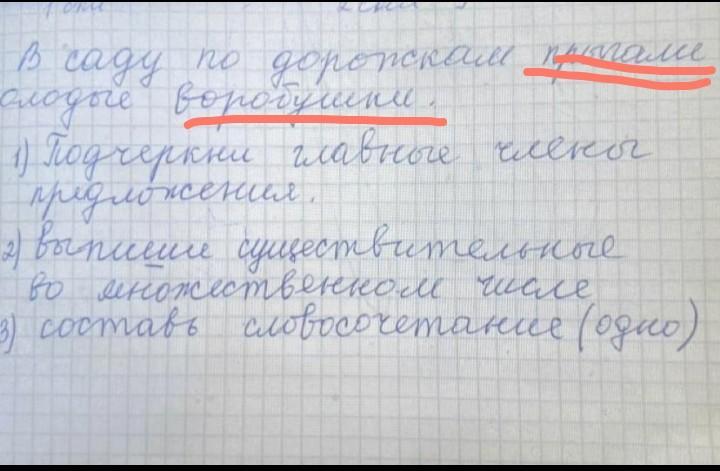 В саду по дорожкам прыгали
олодые воробушки.
1) Подчеркни главные члены
предложения.
2) выпиши существительные
во множественном числе
3) составь словосочетание (одно)